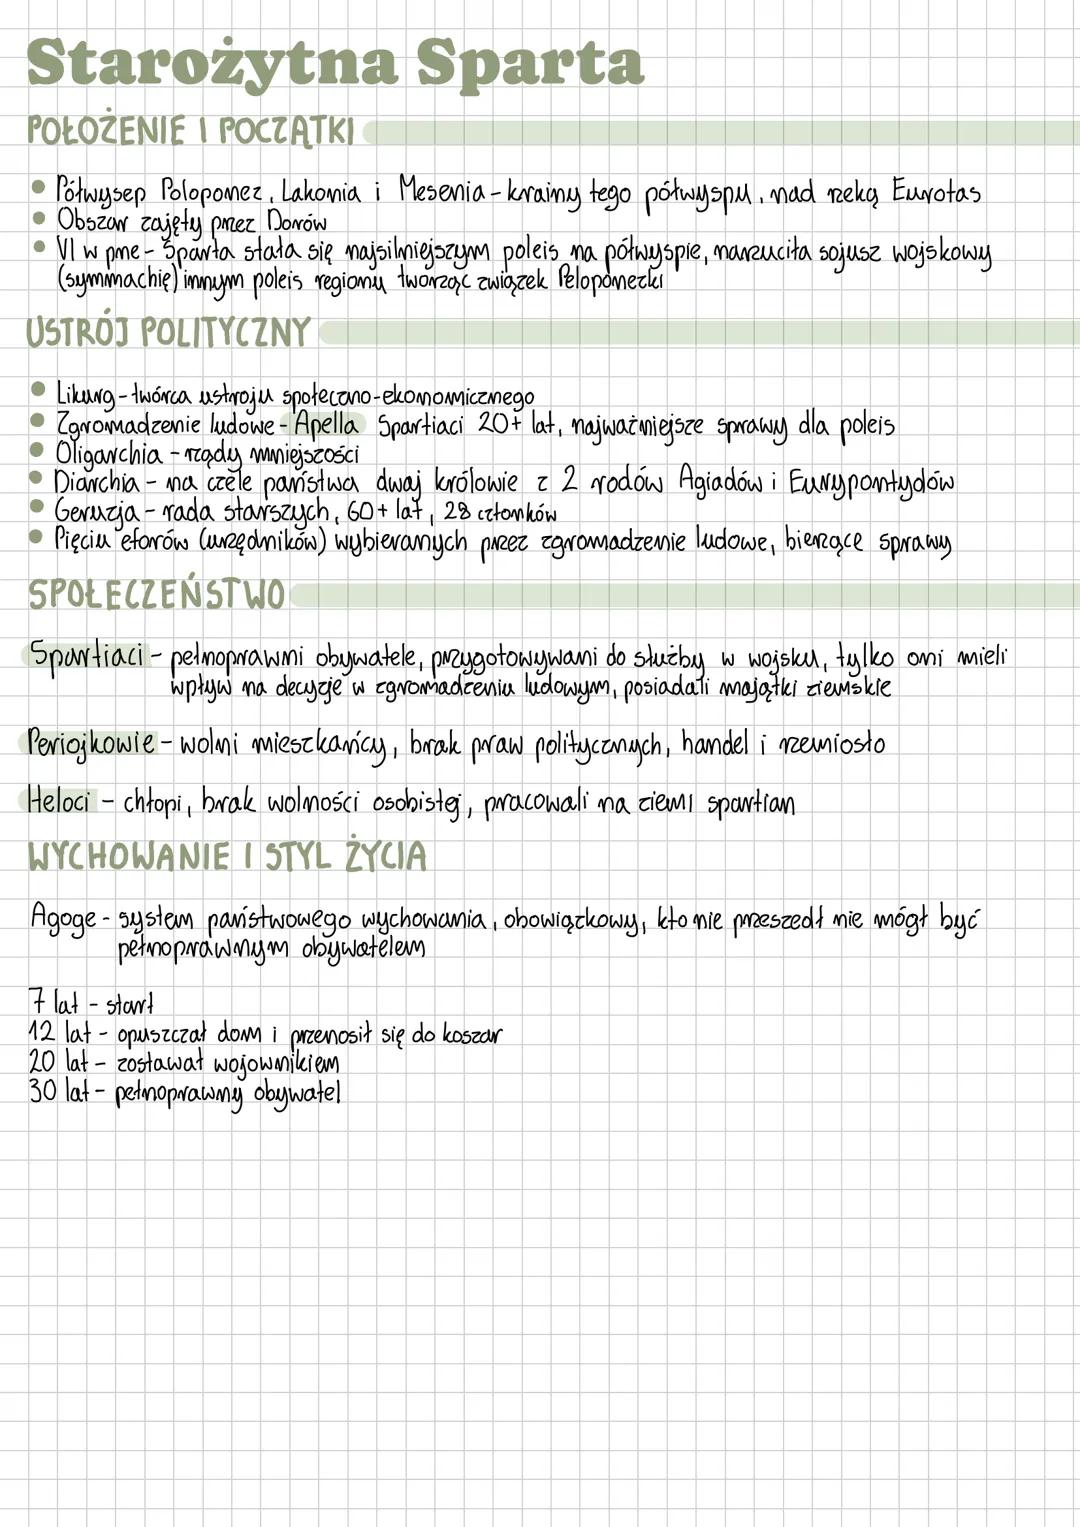 Starożytna Sparta
POŁOŻENIE I POCZĄTKI
• Półwysep Poloponez, Lakonia i Mesenia - krainy tego półwyspu, nad rzeką Eurotas
• Obszar zajęty przez Dorów
• VI w pne - Sparta stała się najsilniejszym poleis na półwyspie, narzuciła sojusz wojskowy
(symmachię) innym poleis regionu tworząc związek Peloponezki
USTRÓJ POLITYCZNY
• Likurg - twórca ustroju społeczno-ekonomicznego
• Zgromadzenie ludowe - Apella Spartiaci 20+ lat, najważniejsze sprawy dla poleis
• Oligarchia - rządy mniejszości
• Diarchia - na czele państwa dwaj królowie z 2 rodów Agiadów i Eurypontydów
• Geruzja - rada starszych, 60+ lat, 28 członków
• Pięciu eforów (urzędników) wybieranych przez zgromadzenie ludowe, bierzące sprawy
SPOŁECZEŃSTWO
Spartiaci - pełnoprawni obywatele, przygotowywani do służby w wojsku, tylko oni mieli
wpływ na decyzje w zgromadzeniu ludowym, posiadali majątki ziemskie
Periojkowie - wolni mieszkańcy, brak praw politycznych, handel i rzemiosło
Heloci - chłopi, brak wolności osobistej, pracowali na ziemi spartian
WYCHOWANIE I STYL ŻYCIA
Agoge - system państwowego wychowania, obowiązkowy, kto nie przeszedł nie mógł być
pełnoprawnym obywatelem
7 lat - start
12 lat - opuszczał dom i przenosił się do koszar
20 lat - zostawał wojownikiem
30 lat - pełnoprawny obywatel